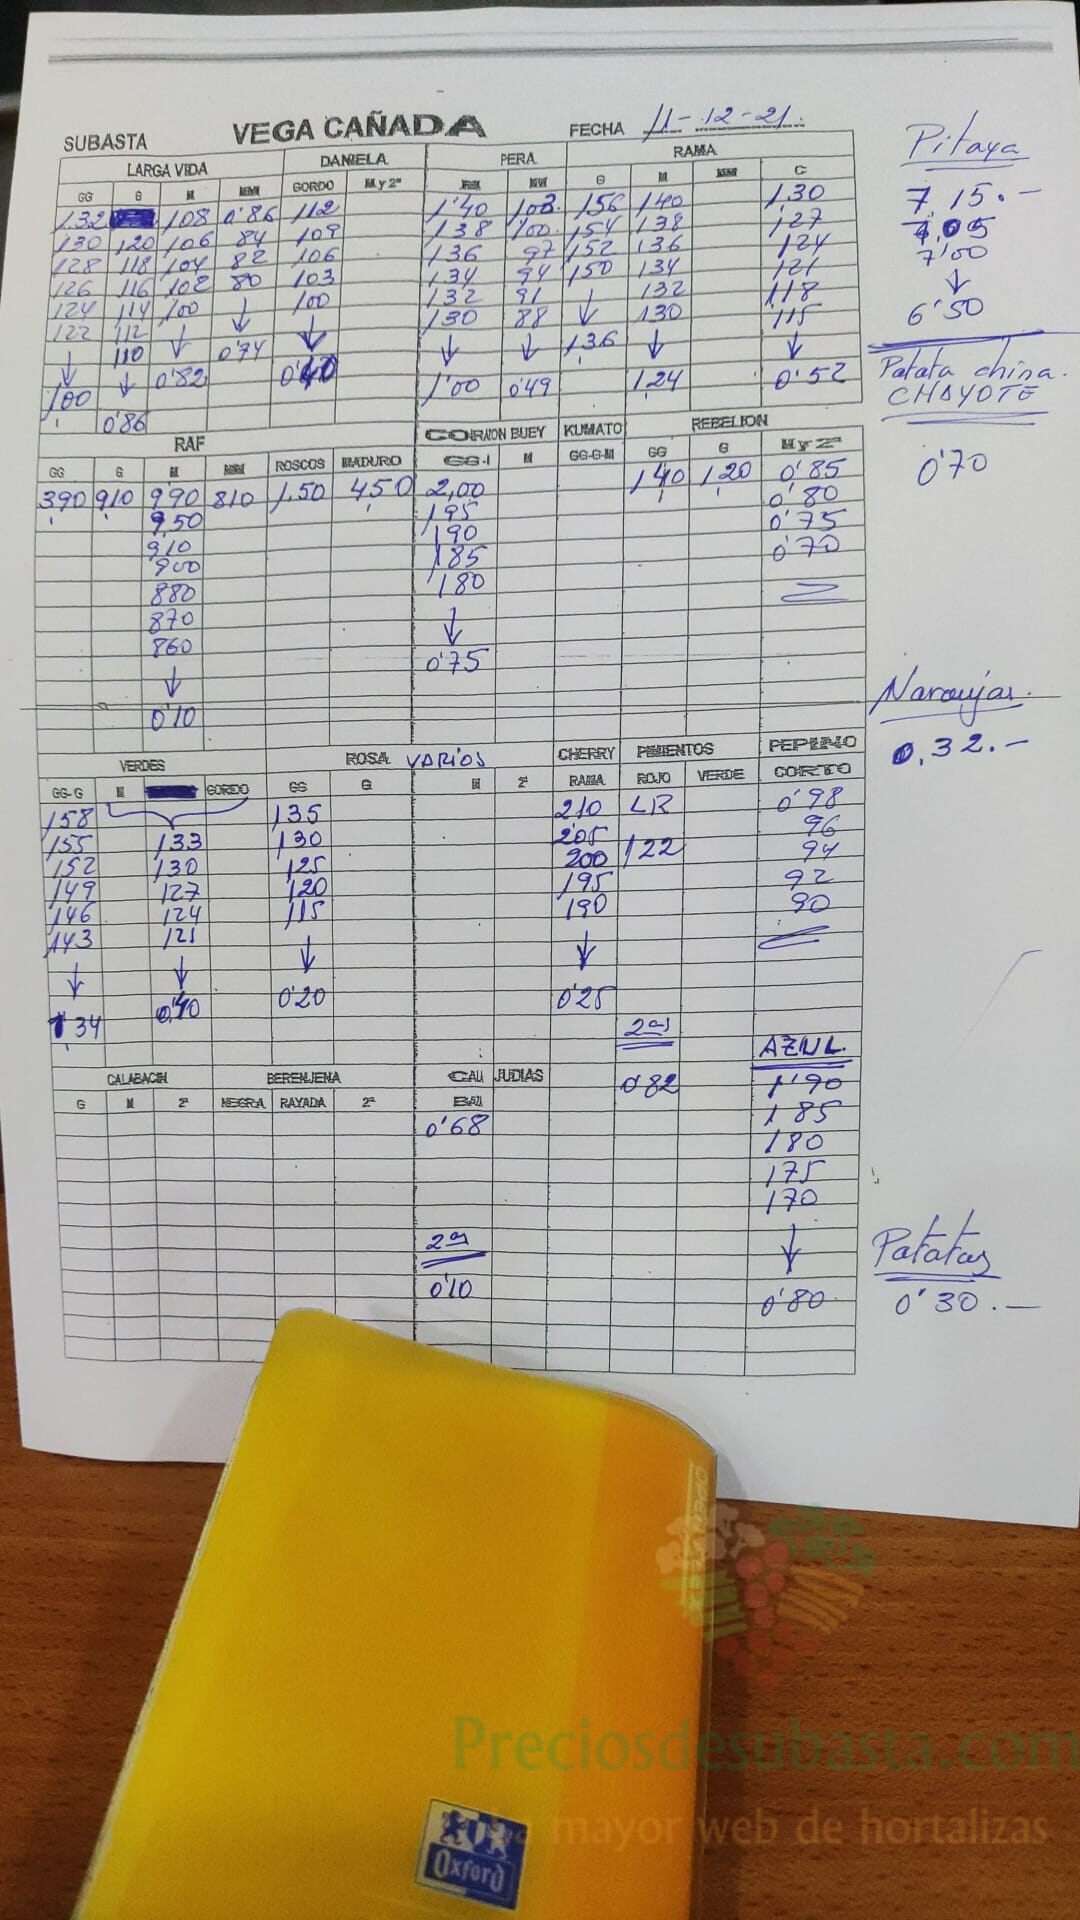 SUBASTA VEGA CAÑADA FECHA 11-12-21.
LARGA VIDA DANIELA PERA RAMA
GG G M MM GORDO M y 2ª G M MM C
132 108 0'86 112 1'40 103 156 140 130
130 120 106 84 109 138 100 154 138 127
128 118 104 82 106 136 97 152 136 124
126 116 102 80 103 134 94 150 134 121
124 114 100 ↓ 100 132 91 ↓ 132 118
122 112 ↓ 0'74 ↓ 130 88 136 130 115
↓ 110 0'82 0'40 ↓ ↓ ↓ ↓
100 ↓ 1'00 0'49 124 0'52
0'86
RAF CORAZON BUEY KUMATO REBELION
GG G M MM ROSCOS MADURO GG-1 M GG-G-M GG G M y 2ª
390 910 990 810 1,50 450 2,00 140 120 0'85
950 195 0'80
910 190 0'75
900 185 0'70
880 180
870 ↓
860 0'75
↓
0'10
VERDES ROSA VARIOS CHERRY PIMIENTOS PEPINO
GG-G M GORDO GG G M 2ª RAMA ROJO VERDE CORTO
158 135 210 LR 0'98
155 133 130 205 96
152 130 125 200 122 94
149 127 120 195 92
146 124 115 190 90
143 121 ↓ ↓
↓ ↓ 0'20 0'25
134 0'40
2as AZUL.
CALABACIN BERENJENA CALI JUDIAS 0'82 1'90
G M 2ª NEGRA RAYADA 2ª BAI 185
0'68 180
175
170
2as ↓
0'10 0'80
Pitaya
7,15.-
7,05
7'00
↓
6'50
Patata china.
CHAYOTE
0'70
Naranjas.
0,32.-
Patatas
0'30.-
Preciosdesubasta.com
La mayor web de hortalizas
Oxford